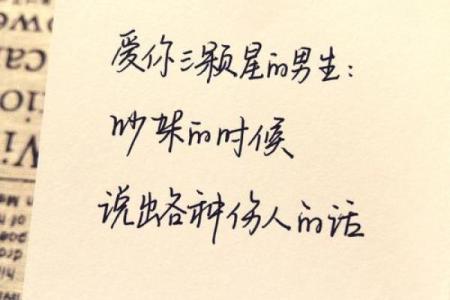 爱你三颗星的男生:
吵架的时候
说出各种伤人的话